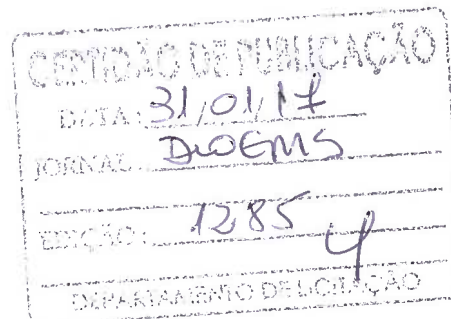 CERTIDÃO DE PUBLICAÇÃO
DATA: 31/01/17
JORNAL: DIOEMS
EDIÇÃO: 1285
DEPARTAMENTO DE LICITAÇÃO